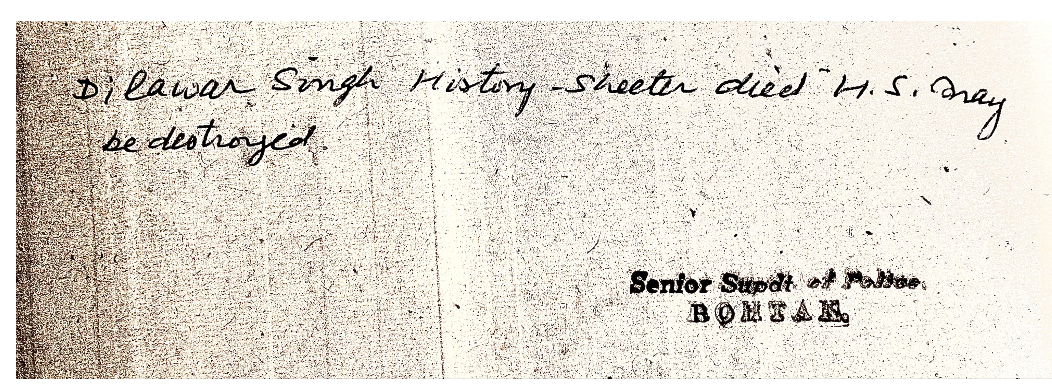 Dilawar Singh History-Sheeter died H.S. may
be destroyed.
Senior Supdt of Police.
ROHTAK.